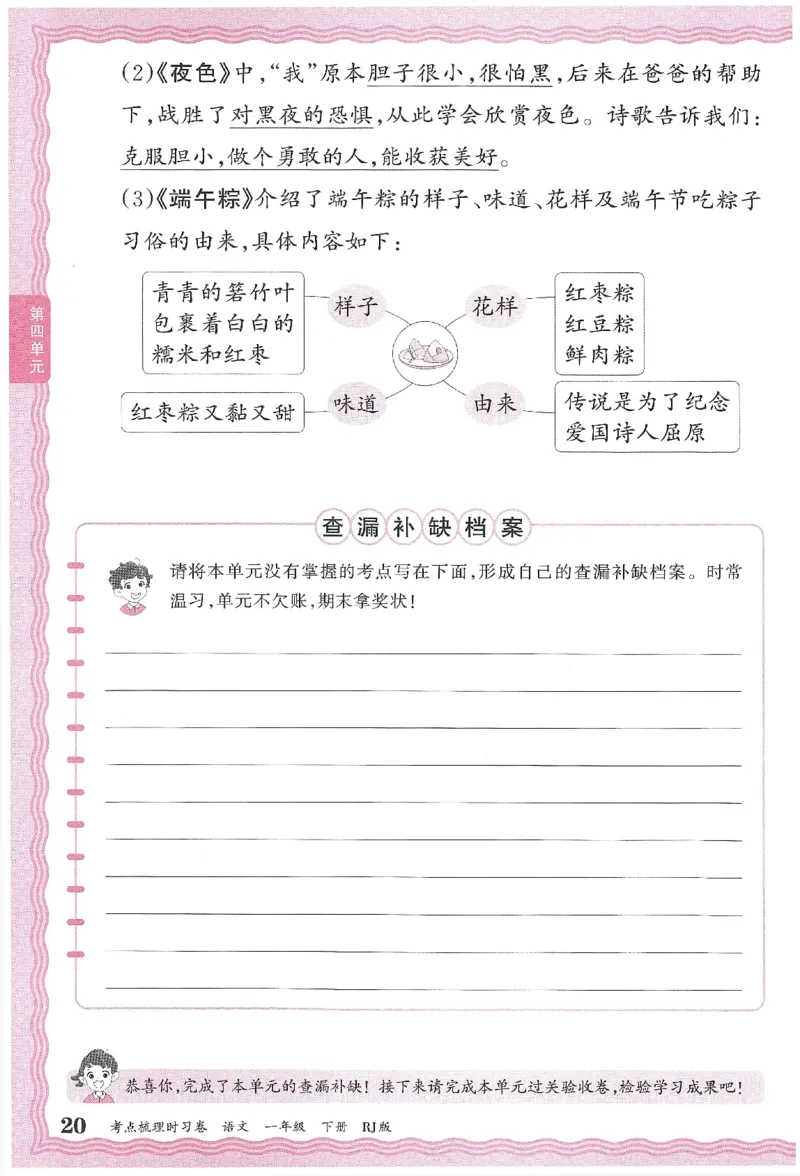 (2)《夜色》中,“我”原本胆子很小,很怕黑,后来在爸爸的帮助
下,战胜了对黑夜的恐惧,从此学会欣赏夜色。诗歌告诉我们:
克服胆小,做个勇敢的人,能收获美好。
(3)《端午粽》介绍了端午粽的样子、味道、花样及端午节吃粽子
习俗的由来,具体内容如下:
第四单元
青青的箬竹叶
包裹着白白的
糯米和红枣
样子
花样
红枣粽
红豆粽
鲜肉粽
红枣粽又黏又甜
味道
由来
传说是为了纪念
爱国诗人屈原
查漏补缺档案
请将本单元没有掌握的考点写在下面,形成自己的查漏补缺档案。时常
温习,单元不欠账,期末拿奖状!
恭喜你,完成了本单元的查漏补缺!接下来请完成本单元过关验收卷,检验学习成果吧!
20 考点梳理时习卷 语文 一年级 下册 RJ版